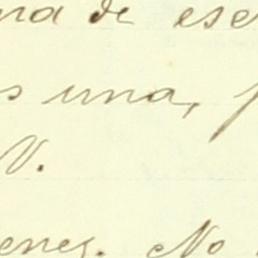 na de ese
s una, p
N.
enes. No